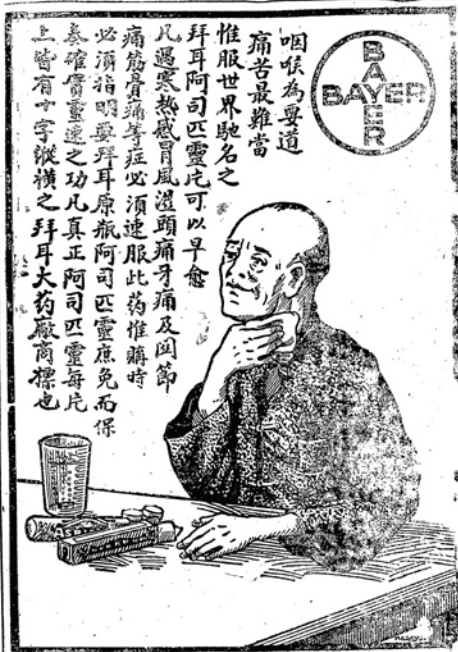 BAYER
BAYER
咽喉為要道
痛苦最難當
惟服世界馳名之
拜耳阿司匹靈片可以早愈
凡遇寒熱感冒風溼頭痛牙痛及関節
痛筋骨痛等症必須速服此药惟購時
必須指明要拜耳原瓶阿司匹靈庶免而保
確實靈速之功凡真正阿司匹靈每片
上皆有十字縱橫之拜耳大药厰商標也